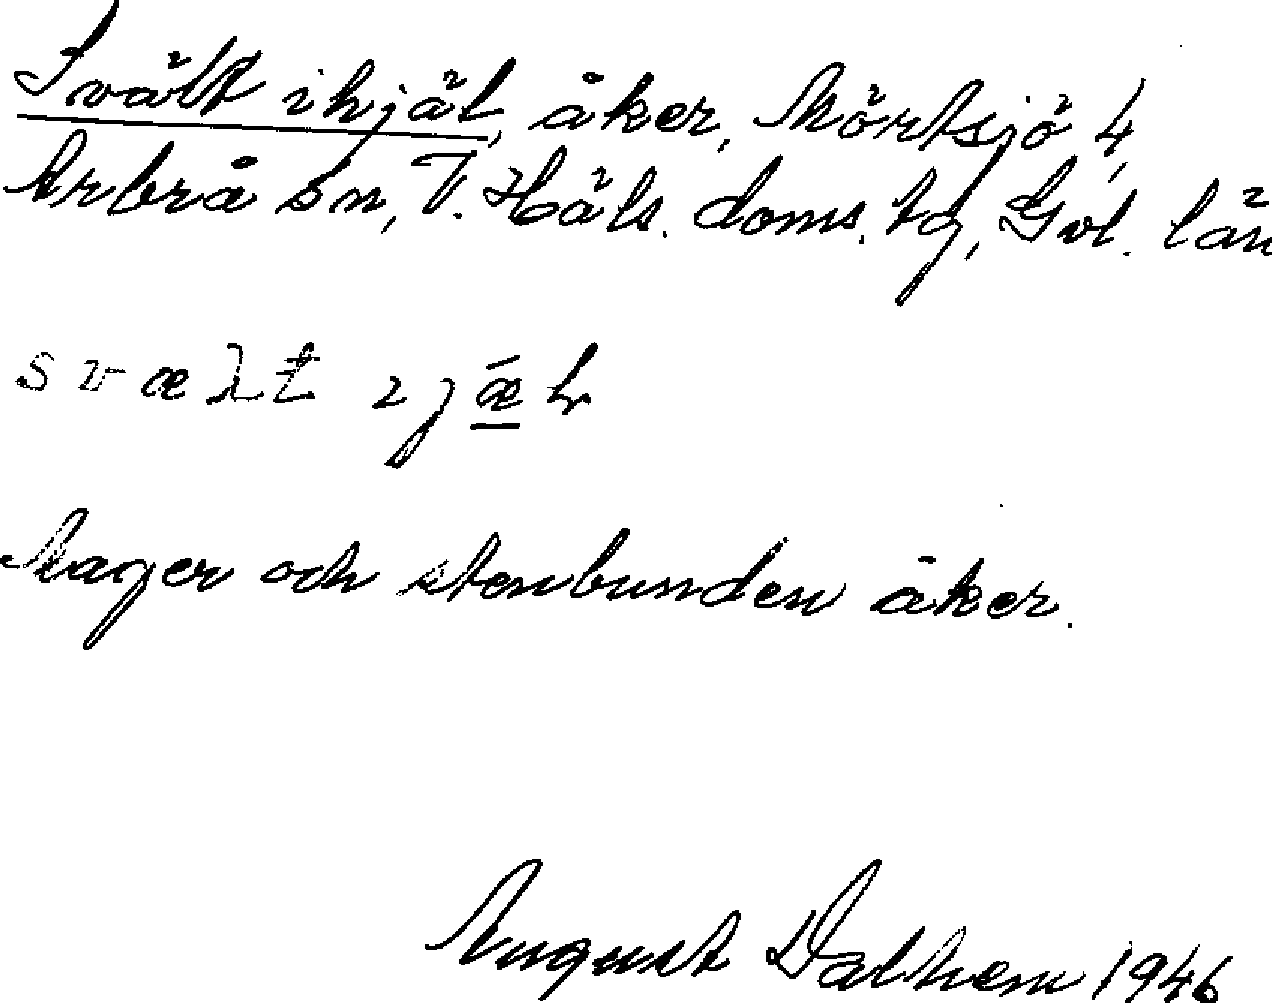 Svält ihjäl, åker, Mörtsjö 4,
Arbrå sn, V. Häls. doms. tg, Gvl. län
Mager och stenbunden åker.
August Dalhem 1946